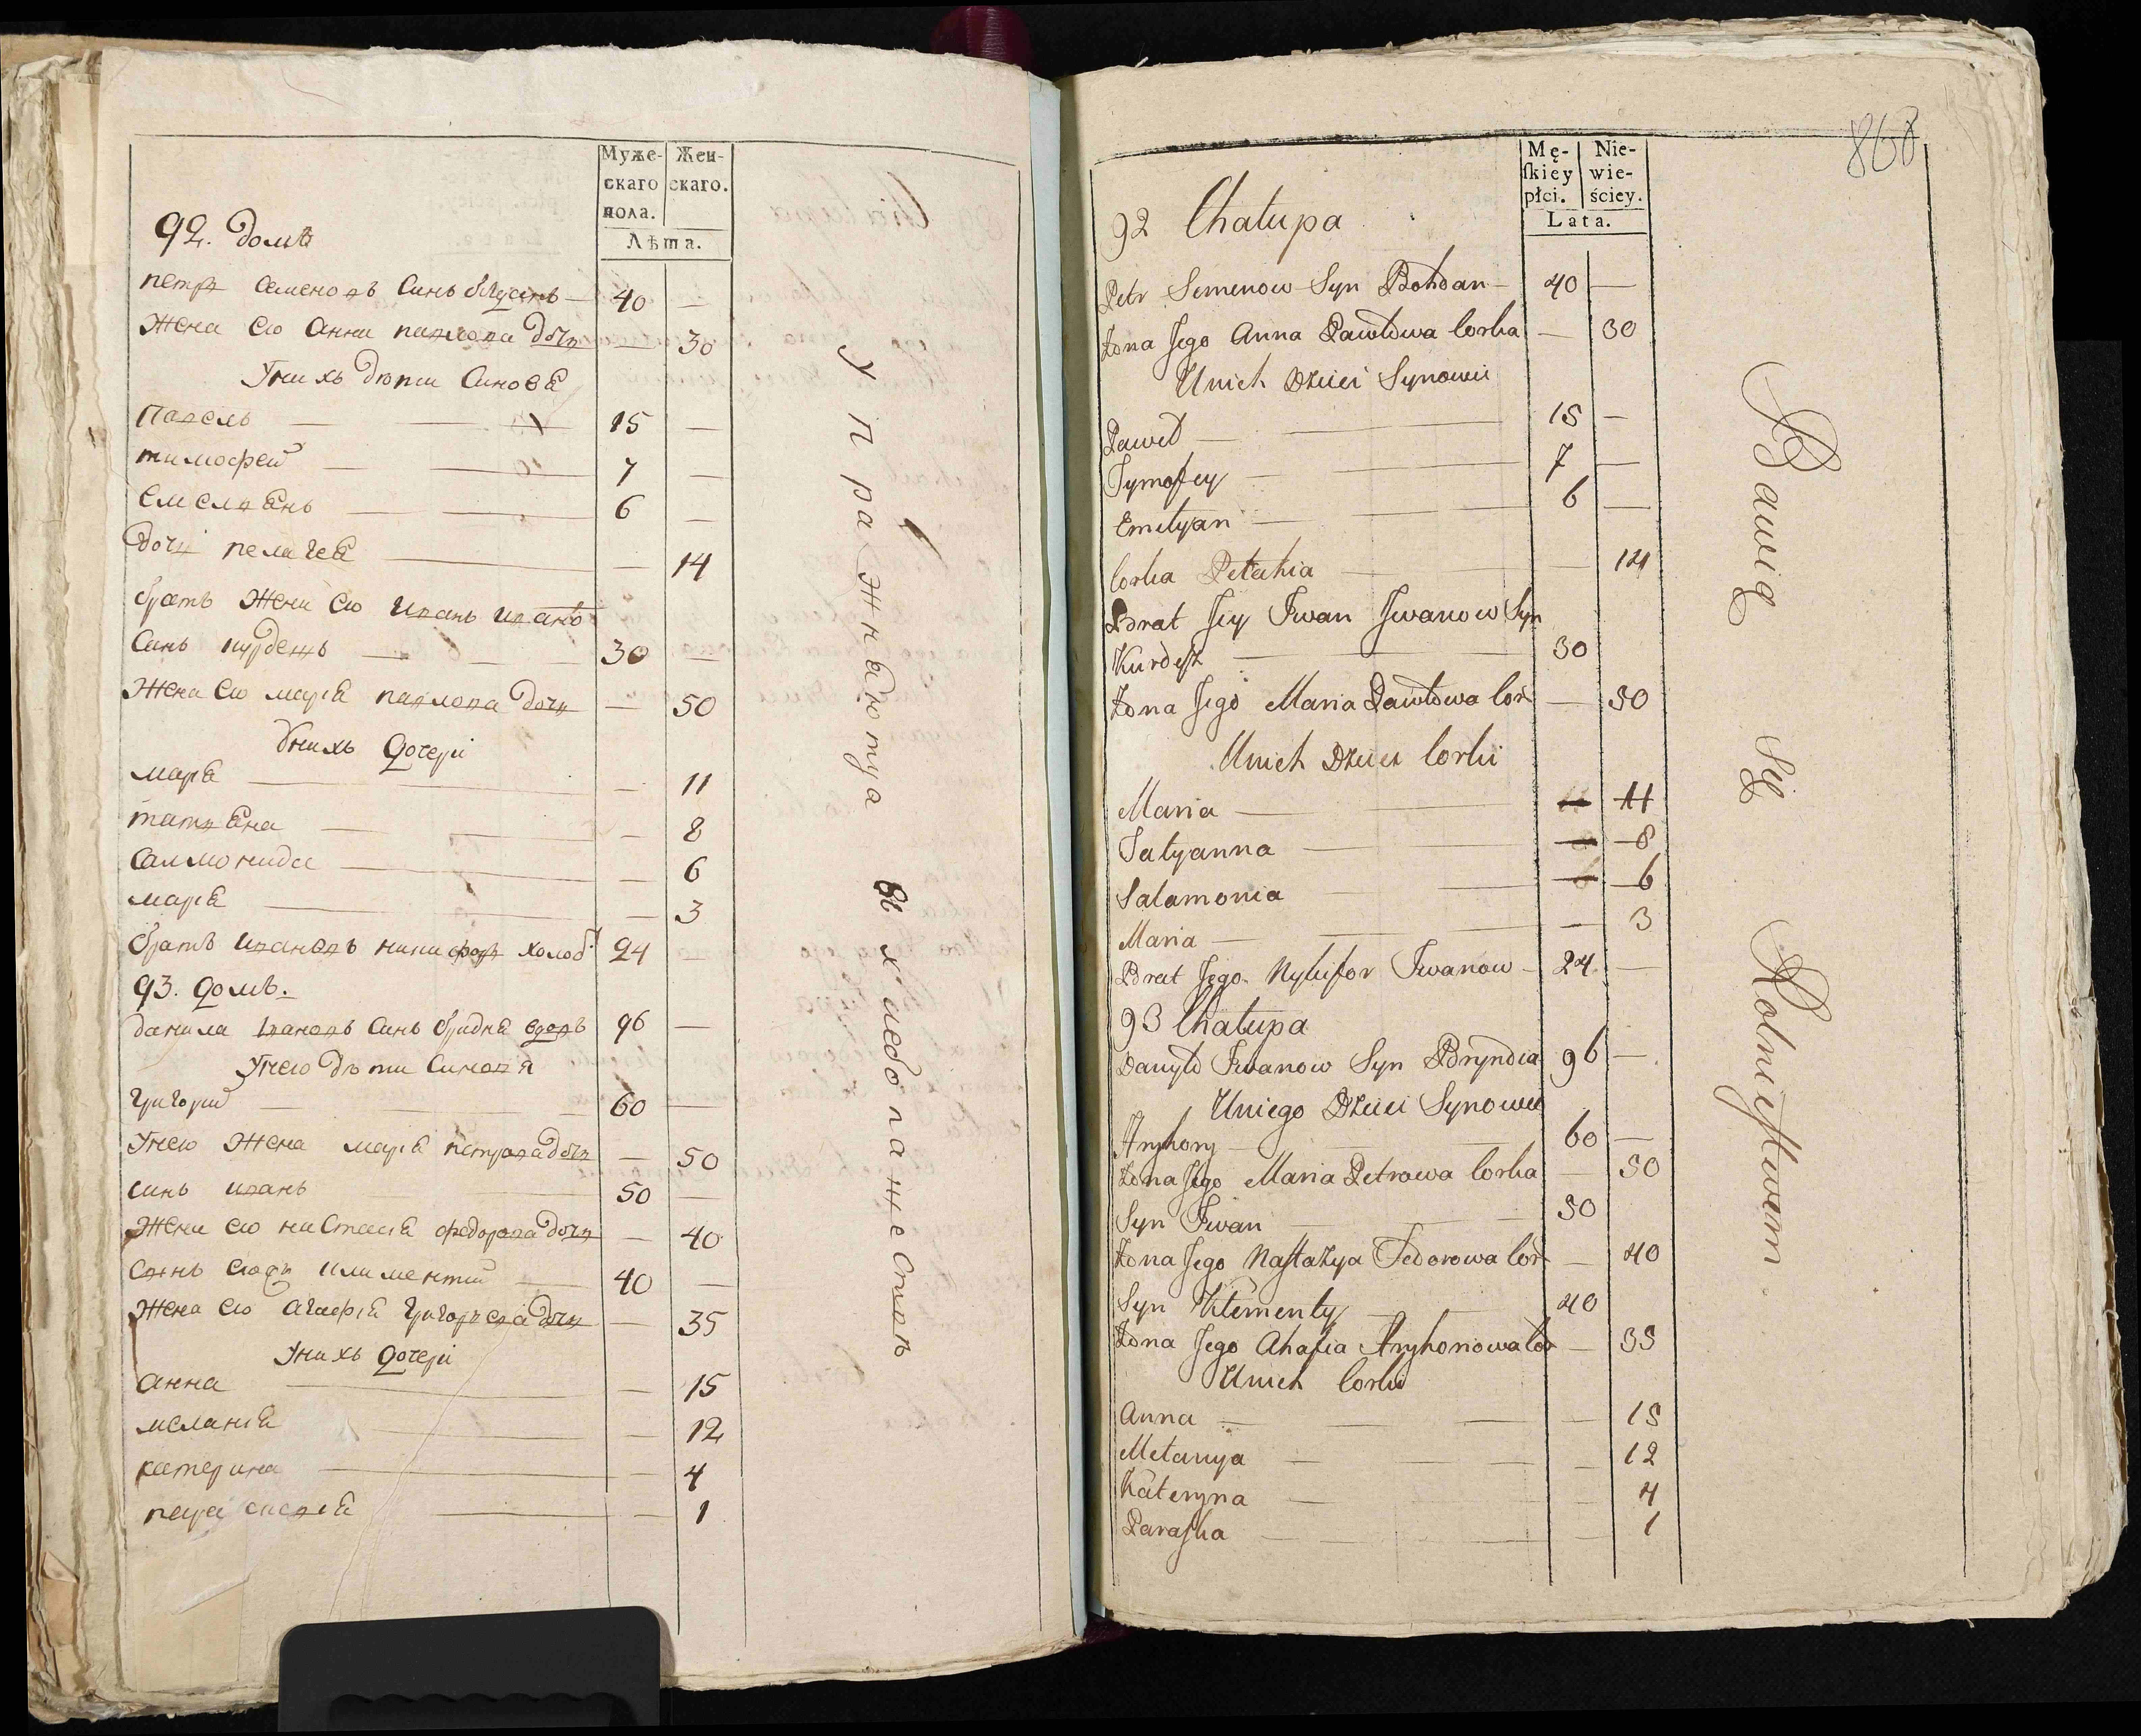 Муже-
скаго
пола.
Жен-
скаго.
Лѣта.
92. домъ
петръ Семеновъ Синъ 40 —
Жена его Анна павлова дочь — 30
Унихъ дѣти Синовѣ
Павелъ — 15 —
тимофей — 7 —
Емелянъ — 6 —
дочь пелагея — 14
братъ жени его Иванъ Ивановъ
Синъ курдешъ — 30 —
Жена его марія павлова дочь — 50
Унихъ дочери
марія — 11
татяна — 8
Саломонида — 6
марія — 3
братъ Ивановъ никифоръ холос 24 —
93. домъ.
данила Ивановъ Синъ бриндя вдовъ 96 —
Унего дѣти Синовя
григорий — 60 —
Унего Жена марія петрова дочь — 50
Синъ иванъ 50 —
Жена его настасія федорова дочь — 40
Синъ климентий — 40 —
Жена его агафія григорьева дочь — 35
Унихъ дочери
анна — 15
меланія — 12
катерина — 4
параскевія — 1
Упражняются въ хлебопашествѣ
868
Mę-
ſkiey
płci.
Nie-
wie-
ściey.
Lata.
92 Chałupa
Petr Semenow Syn Bohdan — 40 —
Żona Jego Anna Pawłowa Corka — 30
Unich Dzieci Synowie
Paweł — 15 —
Tymofey — 7 —
Emelyan — 6 —
Corka Pelahia — 14
Brat Jey Iwan Iwanow Syn
Kurdesz — 30
Żona Jego Maria Pawłowa Cor — 50
Unich Dzieci Corki
Maria — 11
Tatyanna — 8
Salamonia — 6
Maria — 3
Brat Jego Nykifor Iwanow — 24 —
93 Chałupa
Danyło Iwanow Syn Bryndia 96 —
Uniego Dzieci Synowie
Hryhory — 60 —
Żona Jego Maria Petrowa Corka — 50
Syn Iwan — 50
Żona Jego Nastazya Fedorowa Cor — 40
Syn Klementy — 40
Żona Jego Ahafia Hryhorowa Cor — 35
Unich Corki
Anna — 15
Melanya — 12
Kateryna — 4
Paraska — 1
Bawią się Rolnictwem.